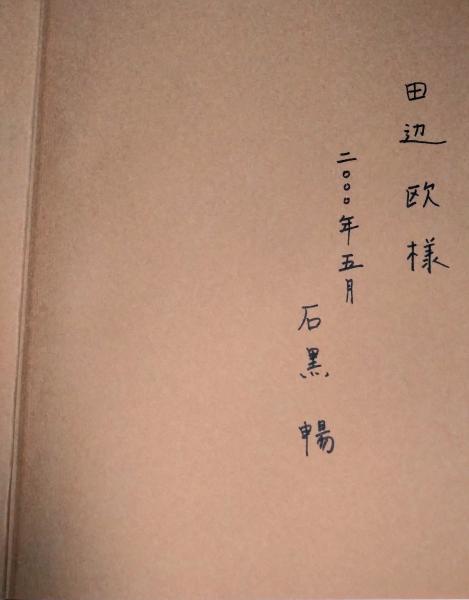 田辺 欧 様
二〇〇〇年五月
石黒 暢